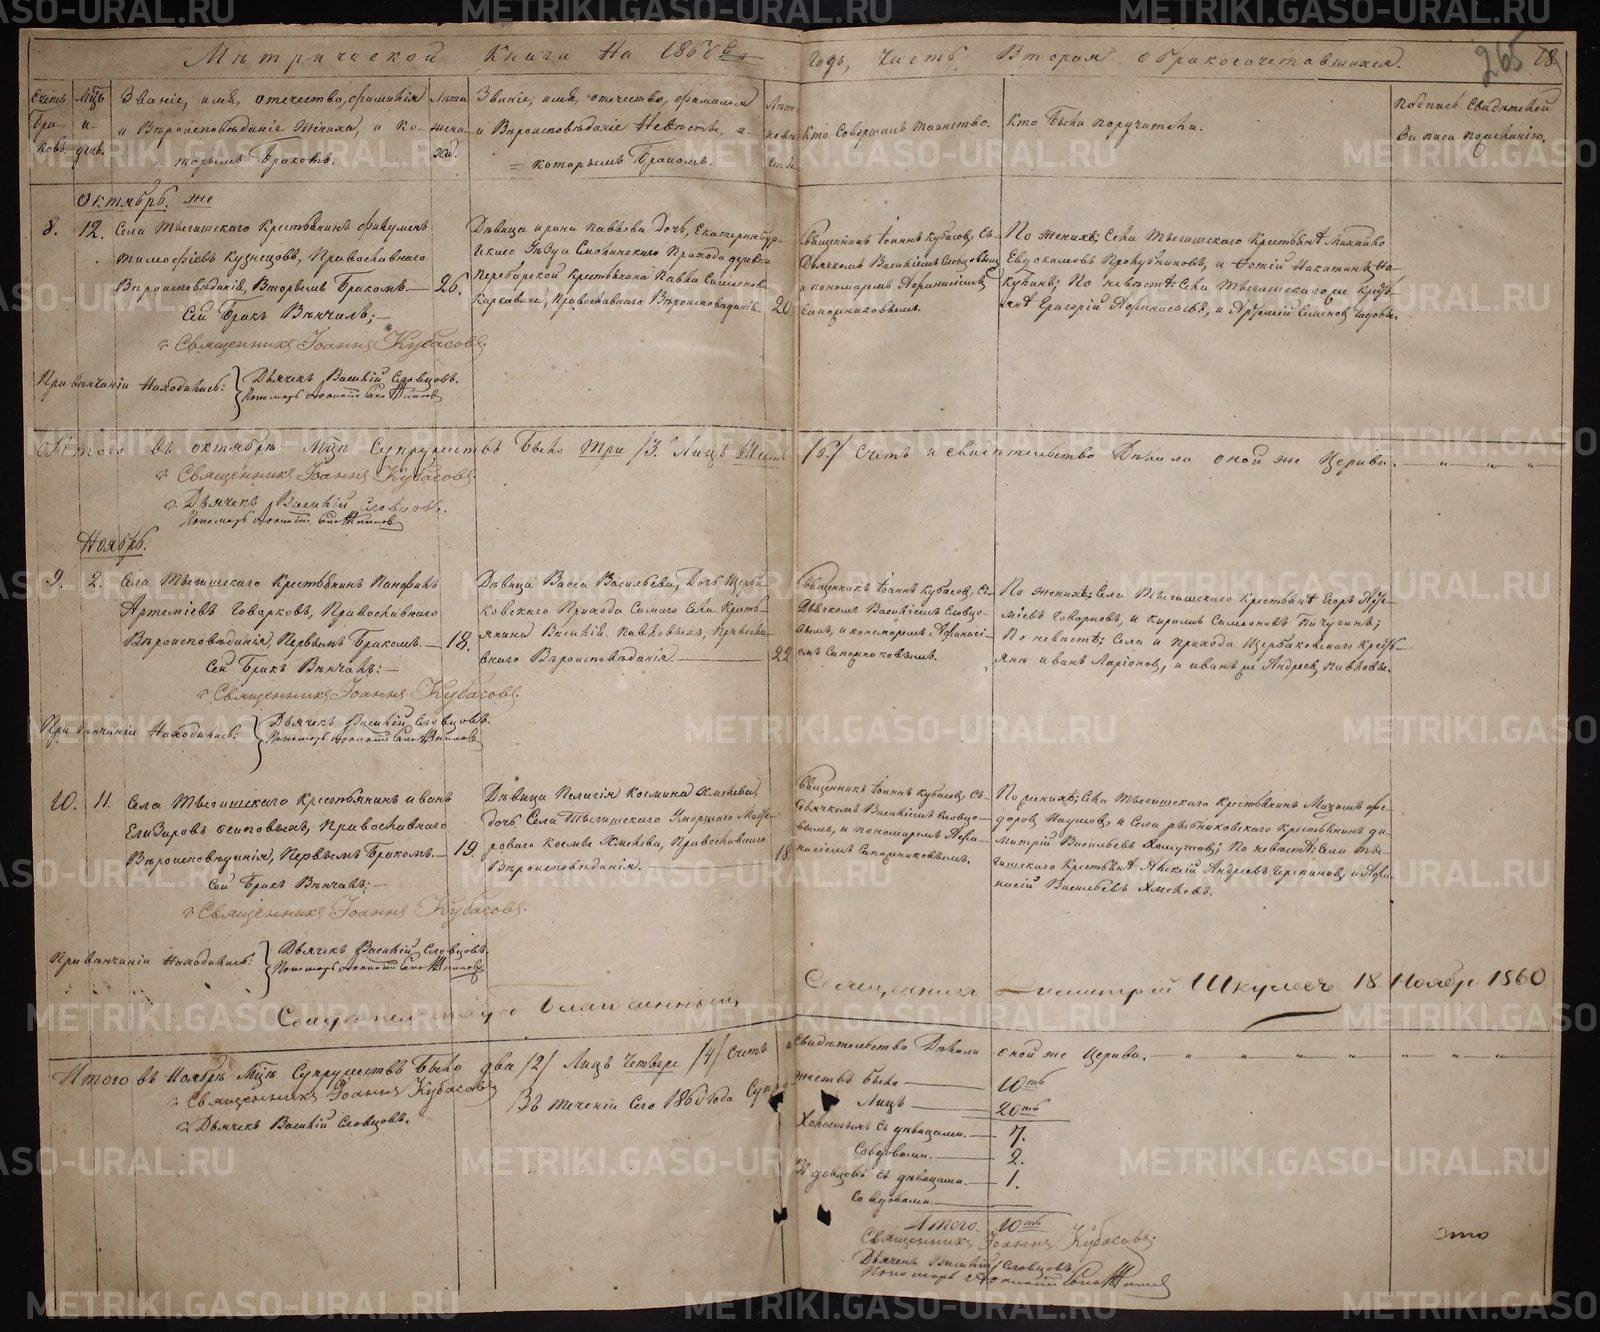 Метрической Книги на 1860й
Годъ, Часть Вторая о бракосочетавшихся.
265
18
Счетъ Бра- ковъ.
Мцъ и день.
Званіе, имя, отечество, фамилія
и Вѣроисповѣданіе Жениха, и ко-
торымъ Бракомъ.
Лѣта жени- ха.
Званіе, имя, отечество, фамилія
и Вѣроисповѣданіе Невѣсты, и
которымъ Бракомъ.
Лѣта невѣ- сты
Кто Совершалъ таинство.
Кто были поручители.
Подпись Свидѣтелей
Записи по желанію.
Октябрь же
8. 12. Села Тыгишскаго Крестьянинъ
Тимофѣевъ Кузнецовъ, Православнаго
Вѣроисповѣданія, Вторымъ Бракомъ. — 26.
Сей Бракъ Вѣнчалъ; —
Священникъ Іоаннъ Кубасовъ
При вѣнчаніи находились:
Дьячекъ Василій Словцовъ.
Пономарь
Дѣвица Ирина Павлова дочь, Екатеринбург-
скаго Уѣзда Прихода деревни
Крестьянина Павла
Православнаго Вѣроисповѣданія. 20
Священникъ Іоаннъ Кубасовъ, Съ
Дьячкомъ Василіемъ Словцовымъ
и пономаремъ Афанасіемъ
Сапожниковымъ.
По женихѣ; Села Тыгишскаго Крестьяне Михайло
Евдокимовъ и
По невѣстѣ; Села Тыгишскаго же Крестья-
не Григорій и Семенов
Итого въ октябрѣ Мцѣ Супружествъ было три /3. Лицъ Шесть
/6/ Счетъ и свидѣтельство дѣлали оной же Церкви.
Священникъ Іоаннъ Кубасовъ
Дьячекъ Василій Словцовъ.
Пономарь
Ноябрь.
9. 2. Села Тыгишскаго Крестьянинъ Панфилъ
Артеміевъ Говорковъ, Православнаго
Вѣроисповѣданія, Первымъ Бракомъ. — 18.
Сей Бракъ Вѣнчалъ: —
Священникъ Іоаннъ Кубасовъ.
При вѣнчаніи находились:
Дьячекъ Василій Словцовъ.
Пономарь
Дѣвица Васса Васильева, Дочь Щерба-
ковскаго Прихода Самаго Села Кресть-
янина Василій Павловыхъ, Правосла-
внаго Вѣроисповѣданія. 22
Священникъ Іоаннъ Кубасовъ, Съ
Дьячкомъ Василіемъ Словцо-
вымъ, и пономаремъ Афанасі-
емъ Сапожниковымъ.
По женихѣ; Села Тыгишскаго Крестьяне Егоръ Арте-
міевъ Говорковъ, и Кирилъ Симеоновъ Пичугинъ;
По невѣстѣ; Села и прихода Щербаковскаго Кресть-
яне Иванъ Ларіонов, и Иванъ же Андреев Павловы.
10. 11. Села Тыгишскаго Крестьянинъ Иванъ
Елизаровъ Осиповыхъ, Православнаго
Вѣроисповѣданія, Первымъ Бракомъ. — 19.
Сей Бракъ Вѣнчалъ: —
Священникъ Іоаннъ Кубасовъ.
При вѣнчаніи находились:
Дьячекъ Василій Словцовъ.
Пономарь
Дѣвица Пелагія Космина Хмелева,
дочь Села Тыгишскаго Умершаго Масте-
роваго Космы Хмелева, Православнаго
Вѣроисповѣданія. 18.
Священникъ Іоаннъ Кубасовъ, Съ
Дьячкомъ Василіемъ Словцо-
вымъ, и пономаремъ Афа-
насіемъ Сапожниковымъ.
По женихѣ; Села Тыгишскаго Крестьянинъ Максимъ Фе-
доровъ и Села Рыбниковскаго Крестьянинъ Ди-
митрій Васильевъ Хомутовъ; По невѣстѣ: Села Ты-
гишскаго Крестьяне Алексій Андреевъ Черепановъ, и Афа-
насій Васильевъ Хмелевъ.
Благочинный,
Священникъ Димитрій 18 Ноябр. 1860
Итого въ Ноябрѣ Мцѣ Супружествъ Было два /2/ Лицъ Четверо /4/ Счетъ и
Свидѣтельство Дѣлали оной же Церкви.
Священникъ Іоаннъ Кубасовъ
Дьячекъ Василій Словцовъ.
Въ теченіи Сего 1860 года Супру-
жествъ было — 10ть
Лицъ — 20ть
Холостыхъ съ дѣвицами. — 7.
Со вдовами. — 2.
Вдовцовъ съ дѣвицами. — 1.
Со вдовами. —
Итого. 10ть
Священникъ Іоаннъ Кубасовъ.
Дьячекъ Василій Словцовъ.
Пономарь
METRIKI.GASO-URAL.RU